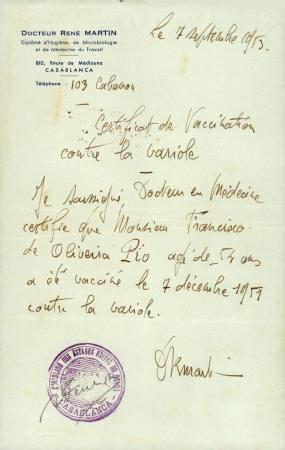 DOCTEUR RENÉ MARTIN
Diplômé d'Hygiène, de Microbiologie
et de Médecine du Travail
810, Route de Médiouna
CASABLANCA
Téléphone : 103 Cabanon
Le 7 septembre 1953.
Certificat de Vaccination
contre la variole
Je soussigné, Docteur en Médecine
certifie que Monsieur Francisco
de Oliveira Pio agé de 54 ans
a été vacciné le 7 décembre 1951
contre la variole.
CASABLANCA